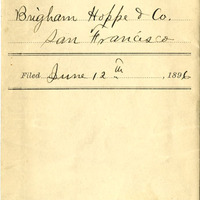 Brigham Hoppe & Co.
San Francisco
Filed June 12th, 1896